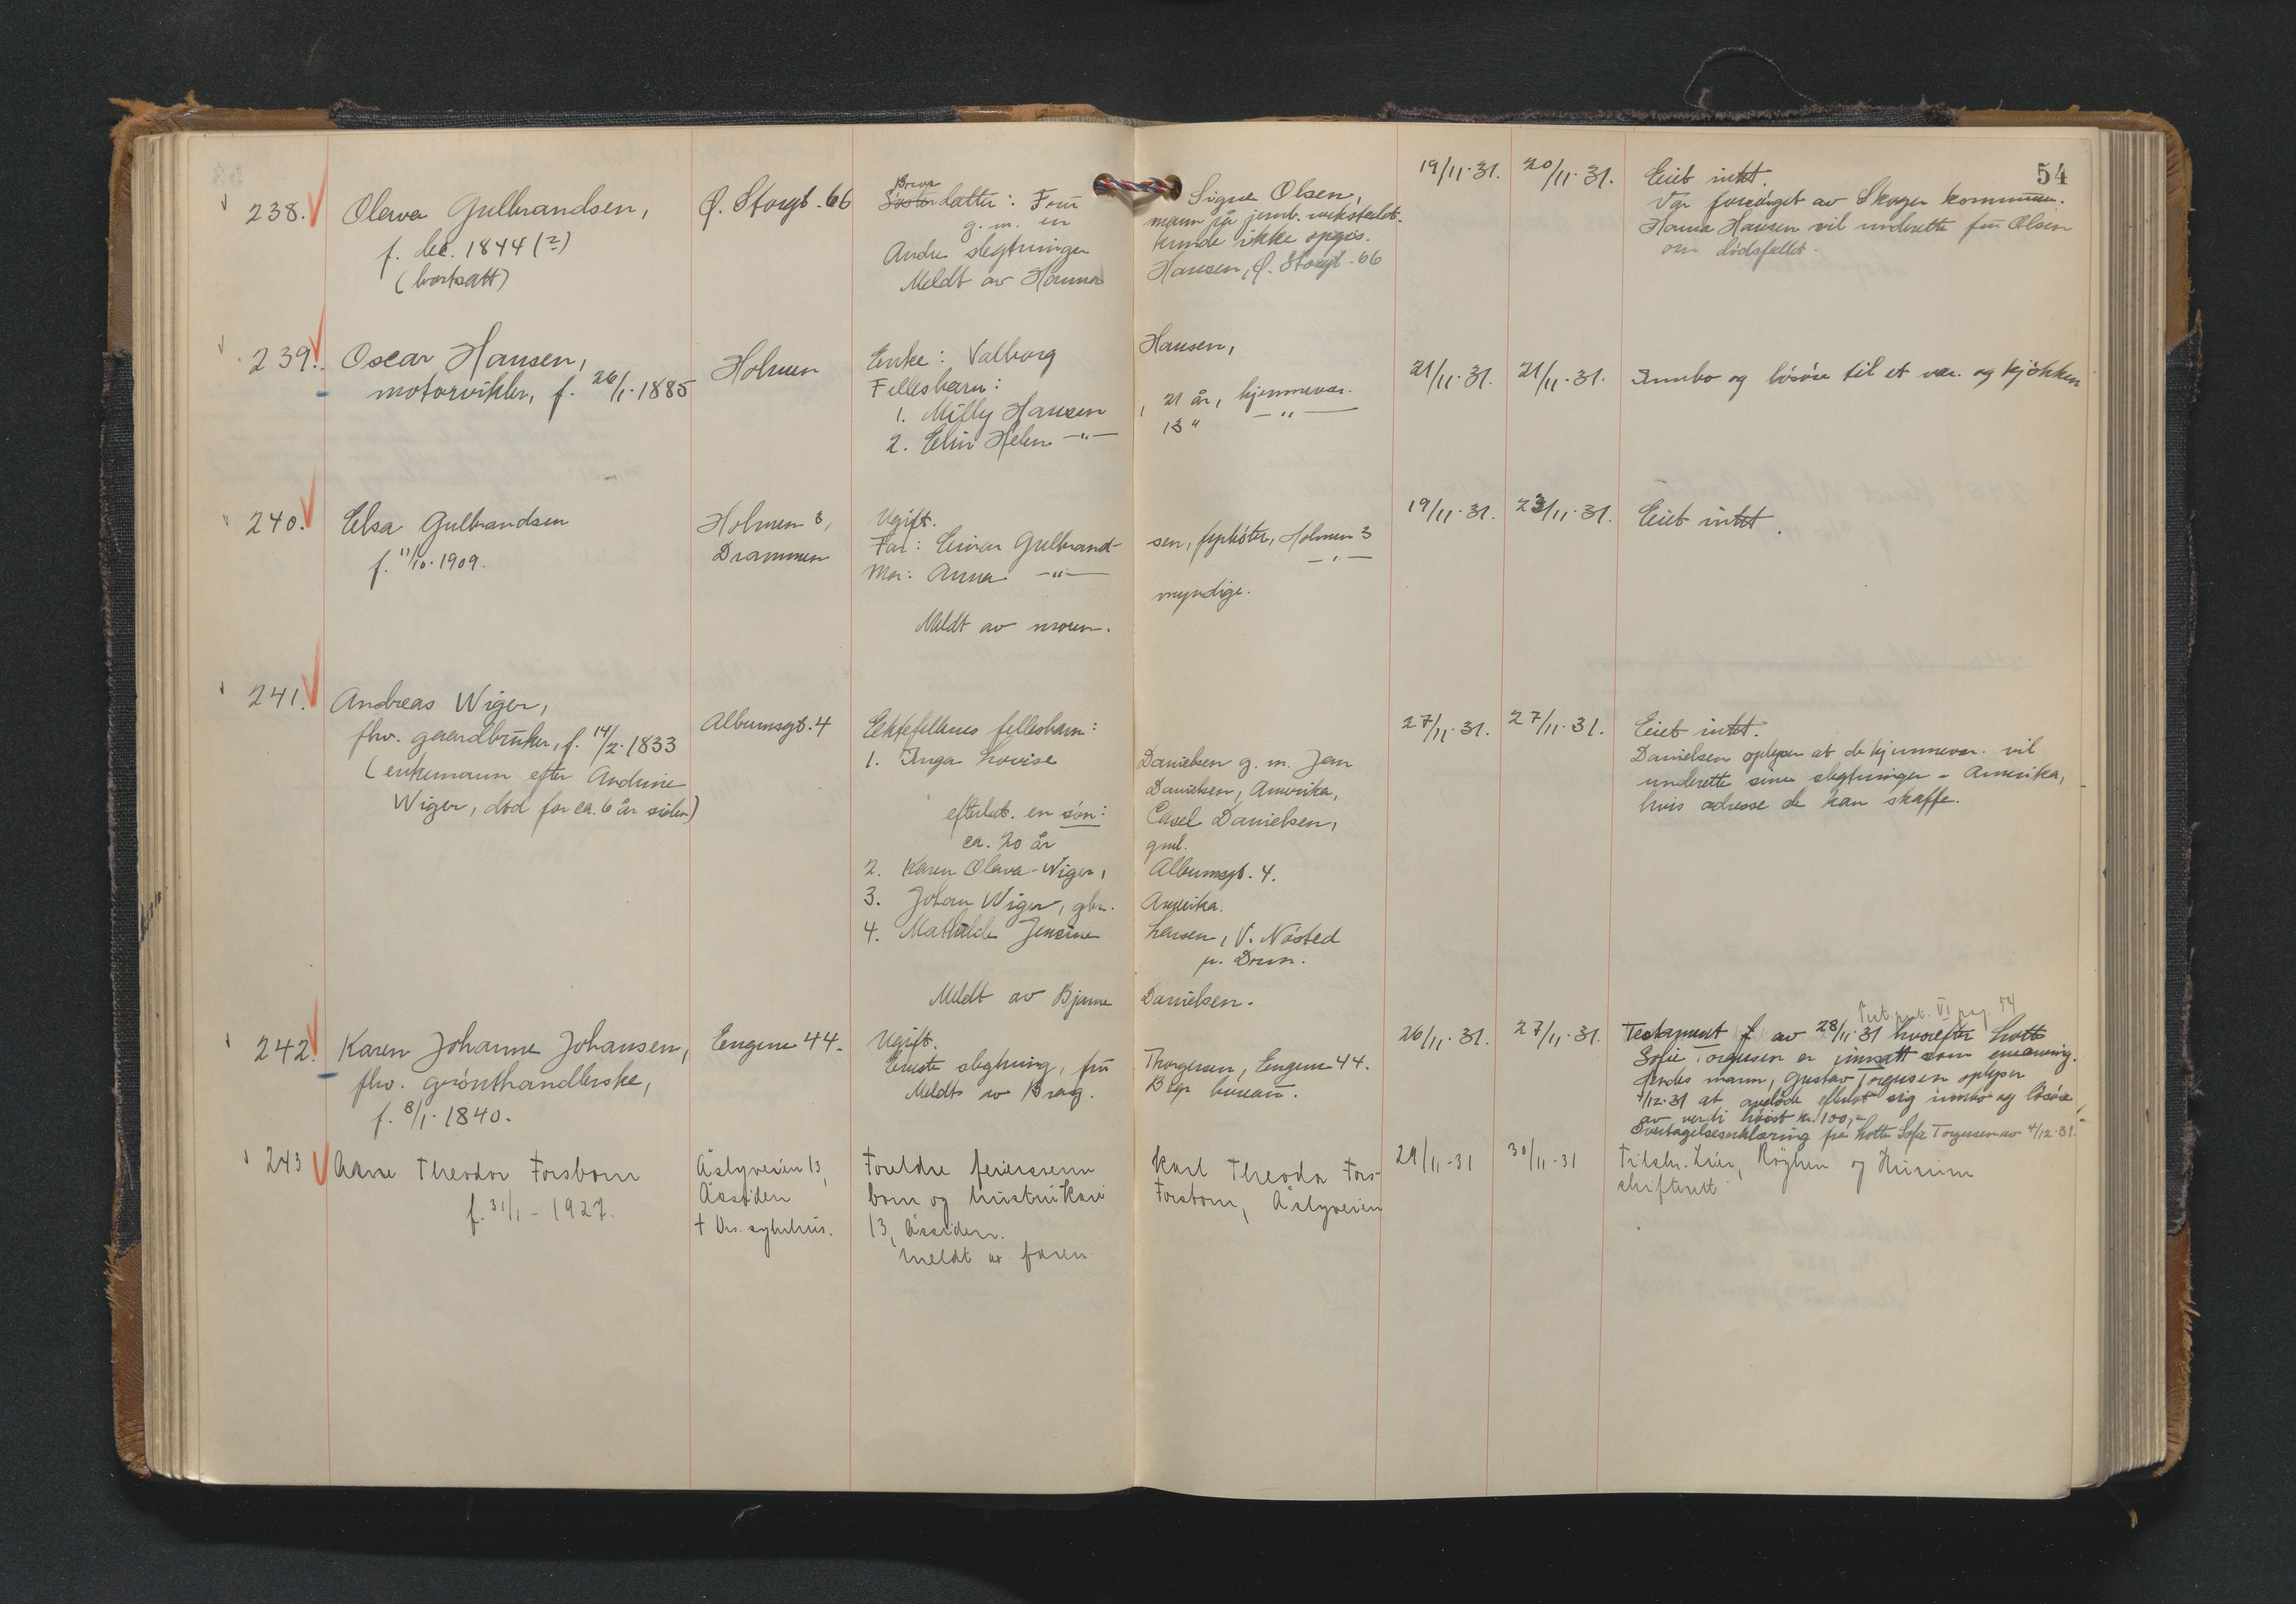 54
238. Olava Gulbrandsen,
f. dec. 1844 (?)
(bortsatt)
Ø. Storgt. 66
Bror
Søsterdatter: Frau Signe Olsen,
g. m. en mann på jernb. verkstedet.
Andre slegtninger kunde ikke opgis.
Meldt av Hanna Hansen, Ø. Storgt. 66
19/11.31. 20/11.31.
Eiet intet.
Var forsørget av Skoger kommune.
Hanna Hansen vil underette fru Olsen
om dødsfallet.
239. Oscar Hansen,
motorvikler, f. 26/1.1885
Holmen
Enke: Valborg Hansen,
Fellesbarn:
1. Milly Hansen, 21 år, hjemmevær.
2. Elin Helen -"- 13 " -"-
21/11.31. 21/11.31.
Innbo og løsøre til et vær. og kjøkken
240. Elsa Gulbrandsen
f. 11/10.1909.
Holmen 3,
Drammen
Ugift.
Far: Einar Gulbrandsen, fyrbøter, Holmen 3
Mor: Anna -"- -"-
myndige.
Meldt av moren.
19/11.31. 23/11.31.
Eiet intet.
241. Andreas Wiger,
fhv. gaardbruker, f. 14/2.1833
(enkemann efter Andrine
Wiger, død for ca. 6 år siden)
Albumsgt. 4
Ektefellenes fellesbarn:
1. Inga Lovise Danielsen g. m. Jan
Danielsen, Amerika,
efterlot. en søn: Casel Danielsen,
ca. 20 år gml.
2. Karen Olava Wiger, Albumsgt. 4.
3. Johan Wiger, gbr. Amerika.
4. Mathilde Jensine Larsen, V. Nøsted
p. Drm.
Meldt av Bjarne Danielsen.
27/11.31. 27/11.31.
Eiet intet.
Danielsen oplyser at de hjemmevær. vil
underette sine slegtninger i Amerika,
hvis adresse de kan skaffe.
242. Karen Johanne Johansen,
fhv. grønthandlerske,
f. 8/1.1840.
Engene 44.
Ugift.
Eneste slegtning, fru Thorgersen, Engene 44.
Meldt av Brag. Begr. bureau.
26/11.31. 27/11.31.
Test. prot. VI pag. 54
Testament av 28/11.31 hvorefter Lotte
Sofie Torgersen er innsatt som enearving.
Hendes mann, Gustav Torgersen oplyser
4/12.31 at avdøde efterlot sig innbo og løsøre
av verdi høist kr. 100,-
Overtagelseserklæring fra Lotte Sofie Torgersen av 4/12.31.
243 Arne Theodor Forsbom
f. 31/1 - 1927.
Åslyveien 13,
Åssiden
† Drs. sykehus.
Foreldre feiersvenn Karl Theodor Fors-
bom og hustru Kari Forsbom, Åslyveien
13, Åssiden.
Meldt av faren
29/11-31 30/11-31
Tilstr. Lier, Røyken og Hurum
skifterett